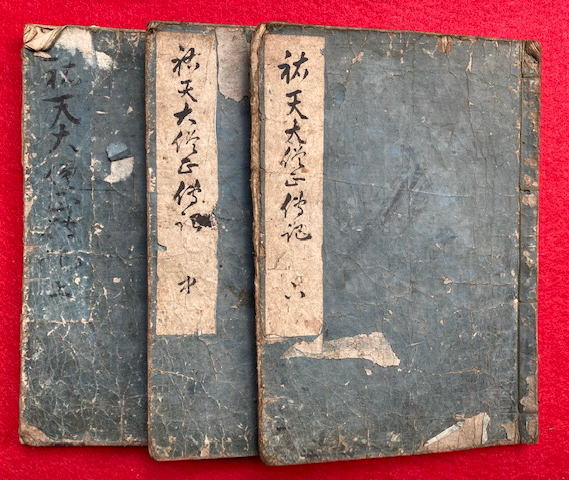 祐天大僧正傳記 上
祐天大僧正傳記 中
祐天大僧正傳記 下